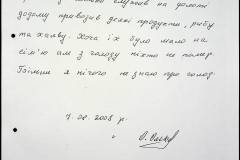 служив на флоті
додому привозив деякі продукти, рибу
та халву. Хоча їх було мало на
сім'ю ам з голоду ніхто не помер.
Більше я нічого не знаю про голод.
7.04.2008 р.